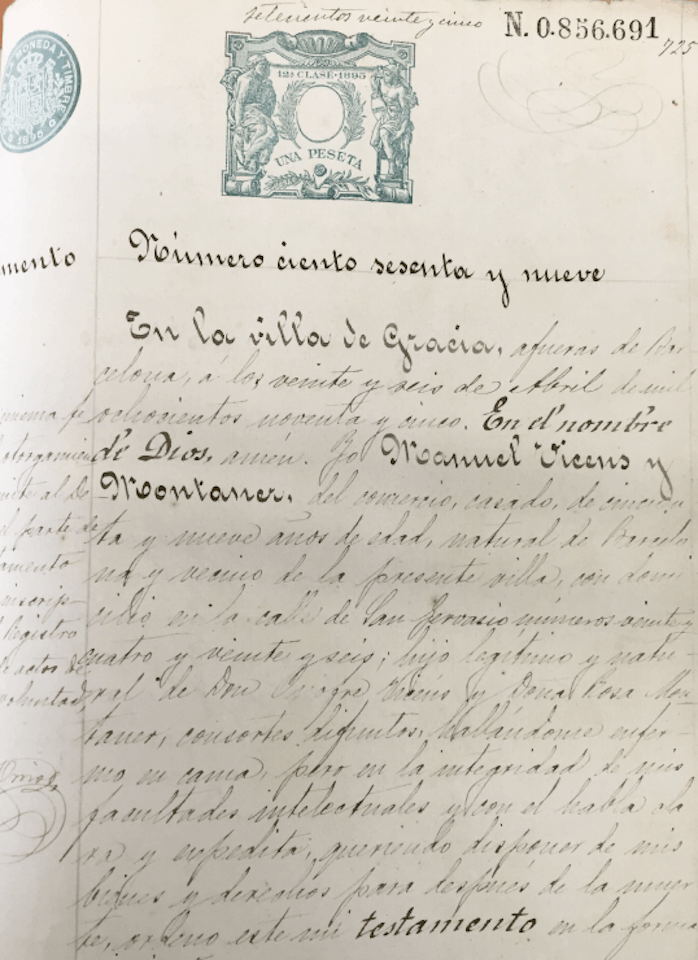 setecientos veinte y cinco
N. 0.856.691
725
MONEDA Y TIMBRE
1895
12ª CLASE-1895
UNA PESETA
Número ciento sesenta y nueve
En la villa de Gracia, afueras de Bar
celona, á los veinte y seis de Abril de mil
ochocientos noventa y cinco. En el nombre
de Dios, amén. Yo Manuel Vicens y
Montaner, del comercio, casado, de cincuen
ta y nueve años de edad, natural de Barcelo
na y vecino de la presente villa, con domi
cilio en la calle de San Gervasio números veinte y
cuatro y veinte y seis; hijo legítimo y natu
ral de Don Onofre Vicens y Doña Rosa Mon
taner, consortes difuntos, hallándome enfer
mo en cama, pero en la integridad de mis
facultades intelectuales y con el habla cla
ra y expedita, queriendo disponer de mis
bienes y derechos para después de la muer
te, ordeno este mi testamento en la forma
mento
parte de
tamento
inscrip-
Registro
actos de
voluntad